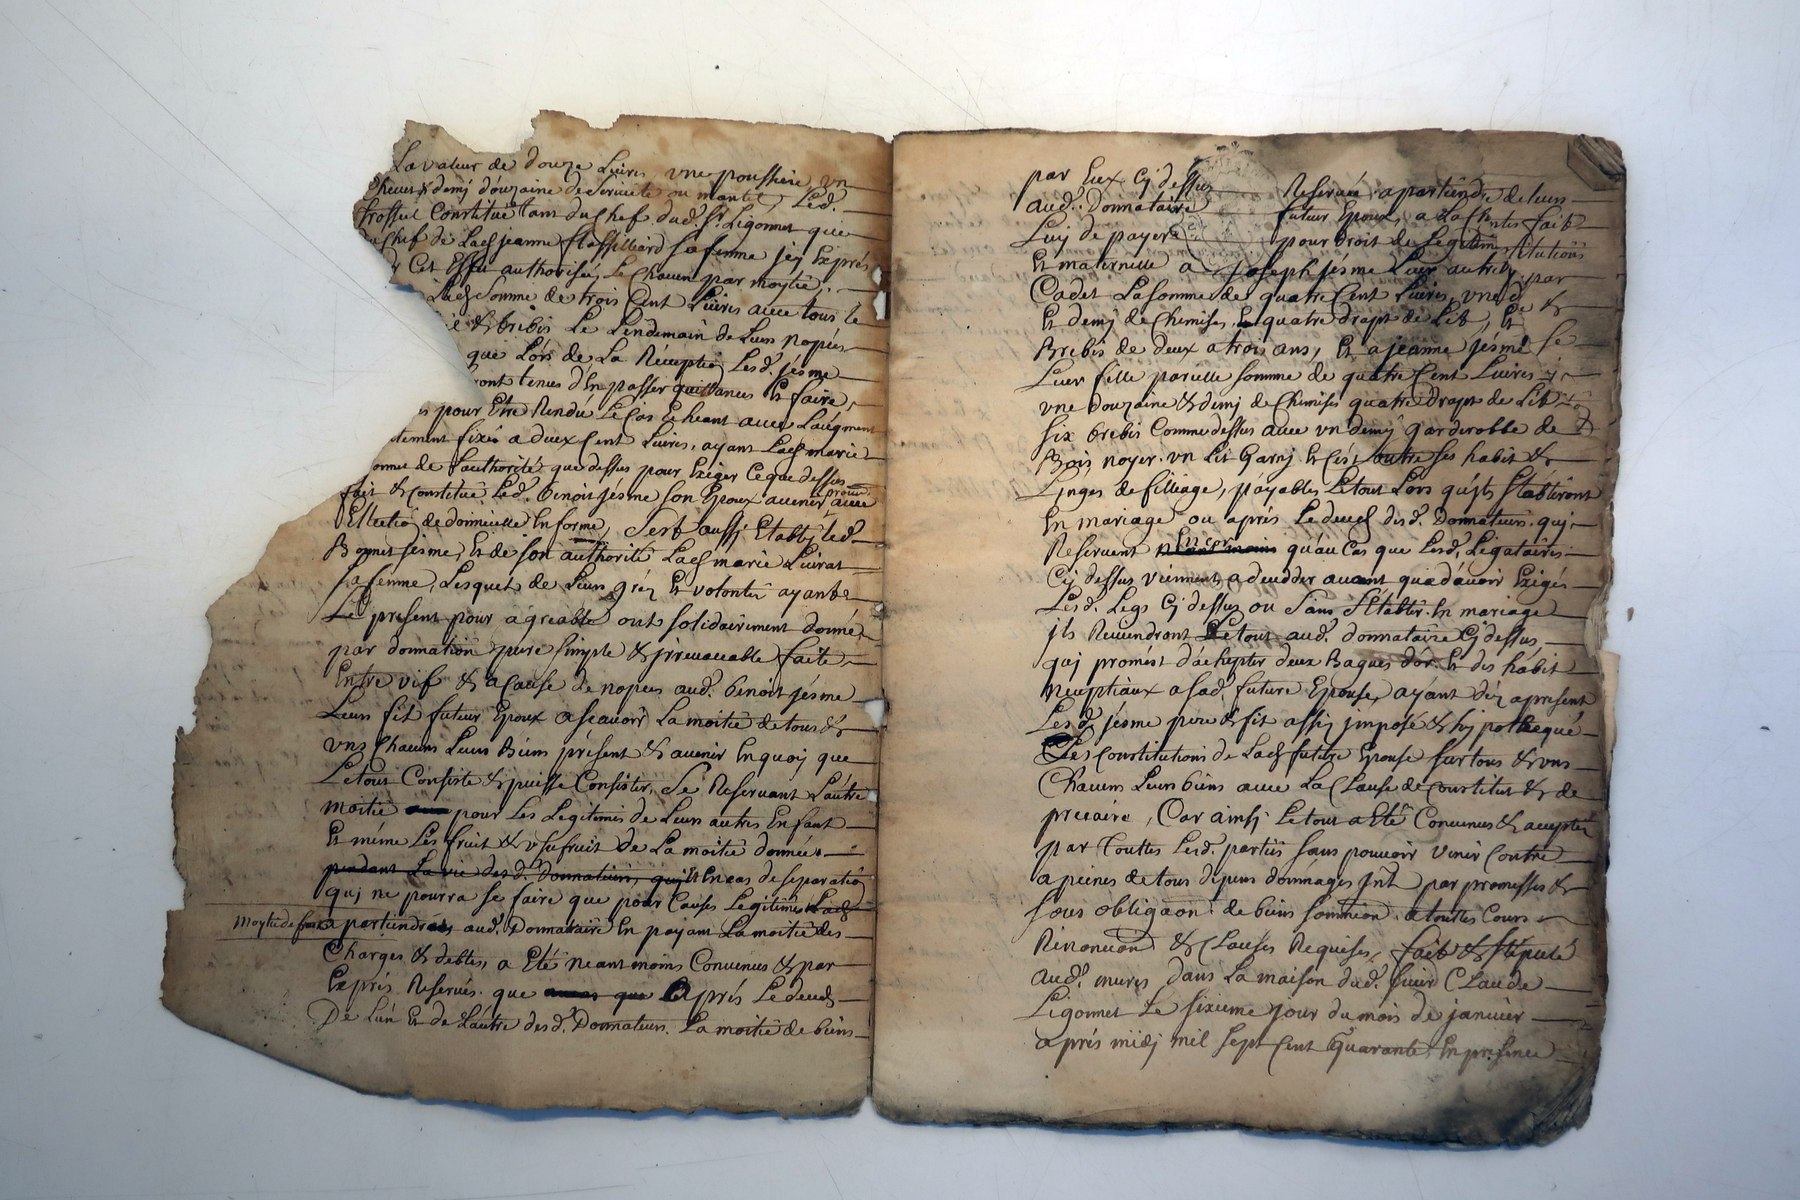 La valeur de douze Livres une poussiere, un
& demj d'ouzaine de serviete ou mante, Led.
trossel Constitué tant du Chef dud. Sr. Ligonnet que
Chef de Lad jeanne sa femme jcy Exprés
Cet Effet authorisée, Le Chacun par moytié,
Lad Somme de trois Cent Livres avec tous le
& brebis Le Lendemain de Leurs nopces
que Lors de La Reception Lesd. jésme
ront tenus d'En passer quittances Et faire,
pour Etre Rendu Le Cas Echeant avec L'augment
fixée a deux Cent Livres, ayant Lad marie
de L'authorité que dessus pour Exiger Ceque dessus
fait & Constitué Led. benoit jésme son Epoux avenir avec
Ellectiō de domicille En forme, Sest aussj Etablj Led.
jésme, Et de son authorité Lad marie Livrat
sa femme, Lesquels de Leurs gréz Et volonter ayant
Le present pour agreable ont solidairement donné,
par donnation pure simple & jrrevocable faite
Entre vif & acause de nopces aud. benoit jésme
Leur fil futeur Epoux ascavoir La moitié de tous &
uns Chacuns Leurs Biens présent & avenir Enquoy que
Letout Consiste & puisse Consister, Se Reservant L'autre
moitié pour Les Legitimes de Leurs autres Enfant
Et méme Les fruit & usufruit de La moitié donnée
pendant La vie desd. Donnateurs, quj Et Encas de separatiō
quj ne pourra se faire que pour Causes Legitimes Lad
Moytié de fruit apartiendras aud. Donnataire En payant La moitié des
Charges & debtes, a Eté neantmoins Convenus & par
Exprés Reservés que Aprés Le deceds
De L'un Et de L'autre desd. Donnateurs. La moitié de biens
par Eux Cj dessus Reservée apartiendra de leurs
aud. Donnataire futeur Epoux, a La fait
Luj de payer pour droit de Legitimes
Et maternelle a joseph jésme Leur autre par
Cadet La somme de quatre Cent Livres, une &
Et demj de Chemises, Et quatre drapt de Lit, Et
Brebis de deux a trois ans, Et a jeanne jésme
Leur fille parielle somme de quatre Cent Livres
une douzaine & demj de Chemises quatre drapt de Lit
six brebis Comme dessus avec un demj garderobbe de
Bois noyer. un Lit Garnj Et Ces, outre ses habit &
Linges de filleage, payables Letout Lors qu'jls s'Etabliront
En mariage ou aprés Le deceds desd. Donnateurs. quj
Reservent Encor qu'au Cas que Lesd. Légataires
Cj dessus viennent a decedder avant que d'avoir Exigés
Lesd. Legs Cj dessus ou Sans S'Etablir En mariage
jls Reviendront Letout aud. donnataire Cj dessus,
quj promést d'achepter deux Bagues d'or Et des habit
neuptiaux a sad. future Epouse, ayant dez apresent
Lesd. jésme pere & fil assis jmposé & hjpothequé
Les Constitutions de Lad future Epouse sur tous & uns
Chacuns Leurs biens avec La Clause de Constitut & de
precaire, Car ainsj Letout a Eté Convenus & accepter
par Touttes Lesd. parties sans pouvoir venir Contre
apeines de tous depens dommages Jnt par promesses &
sous obligaōn de biens a touttes Cours
Rénonciaōn & Clauses Requises, fait & stipulé
aud. mures dans La maison dud. sieur Claude
Ligonnet Le sixieme jour du mois de janvier
aprés midj mil sept Cent Quarante En presence